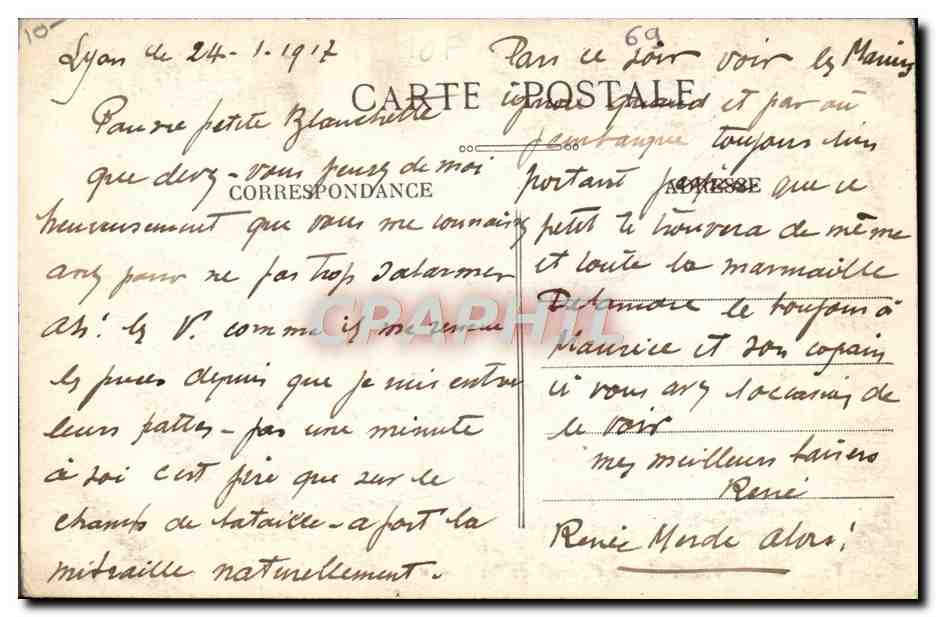 10-
69
Lyon le 24-1-1917
CARTE POSTALE
CORRESPONDANCE
ADRESSE
Pauvre petite Blanchette
que devez-vous penser de moi
heureusement que vous me connaissez
assez pour ne pas trop s'alarmer
Ah! les V. comme ils me
les puces depuis que je suis entre
leurs pattes - pas une minute
à soi c'est pire que sur le
champs de bataille - à part la
mitraille naturellement.
Pars ce soir voir les Marins
ignore quand et par où
j'embarque toujours bien
portant que ce
petit te trouvera de même
et toute la marmaille
le toujours à
Maurice et son copain
si vous avez l'occasion de
le voir
mes meilleurs baisers
René
Renée Merde alors!
CPAPHIL